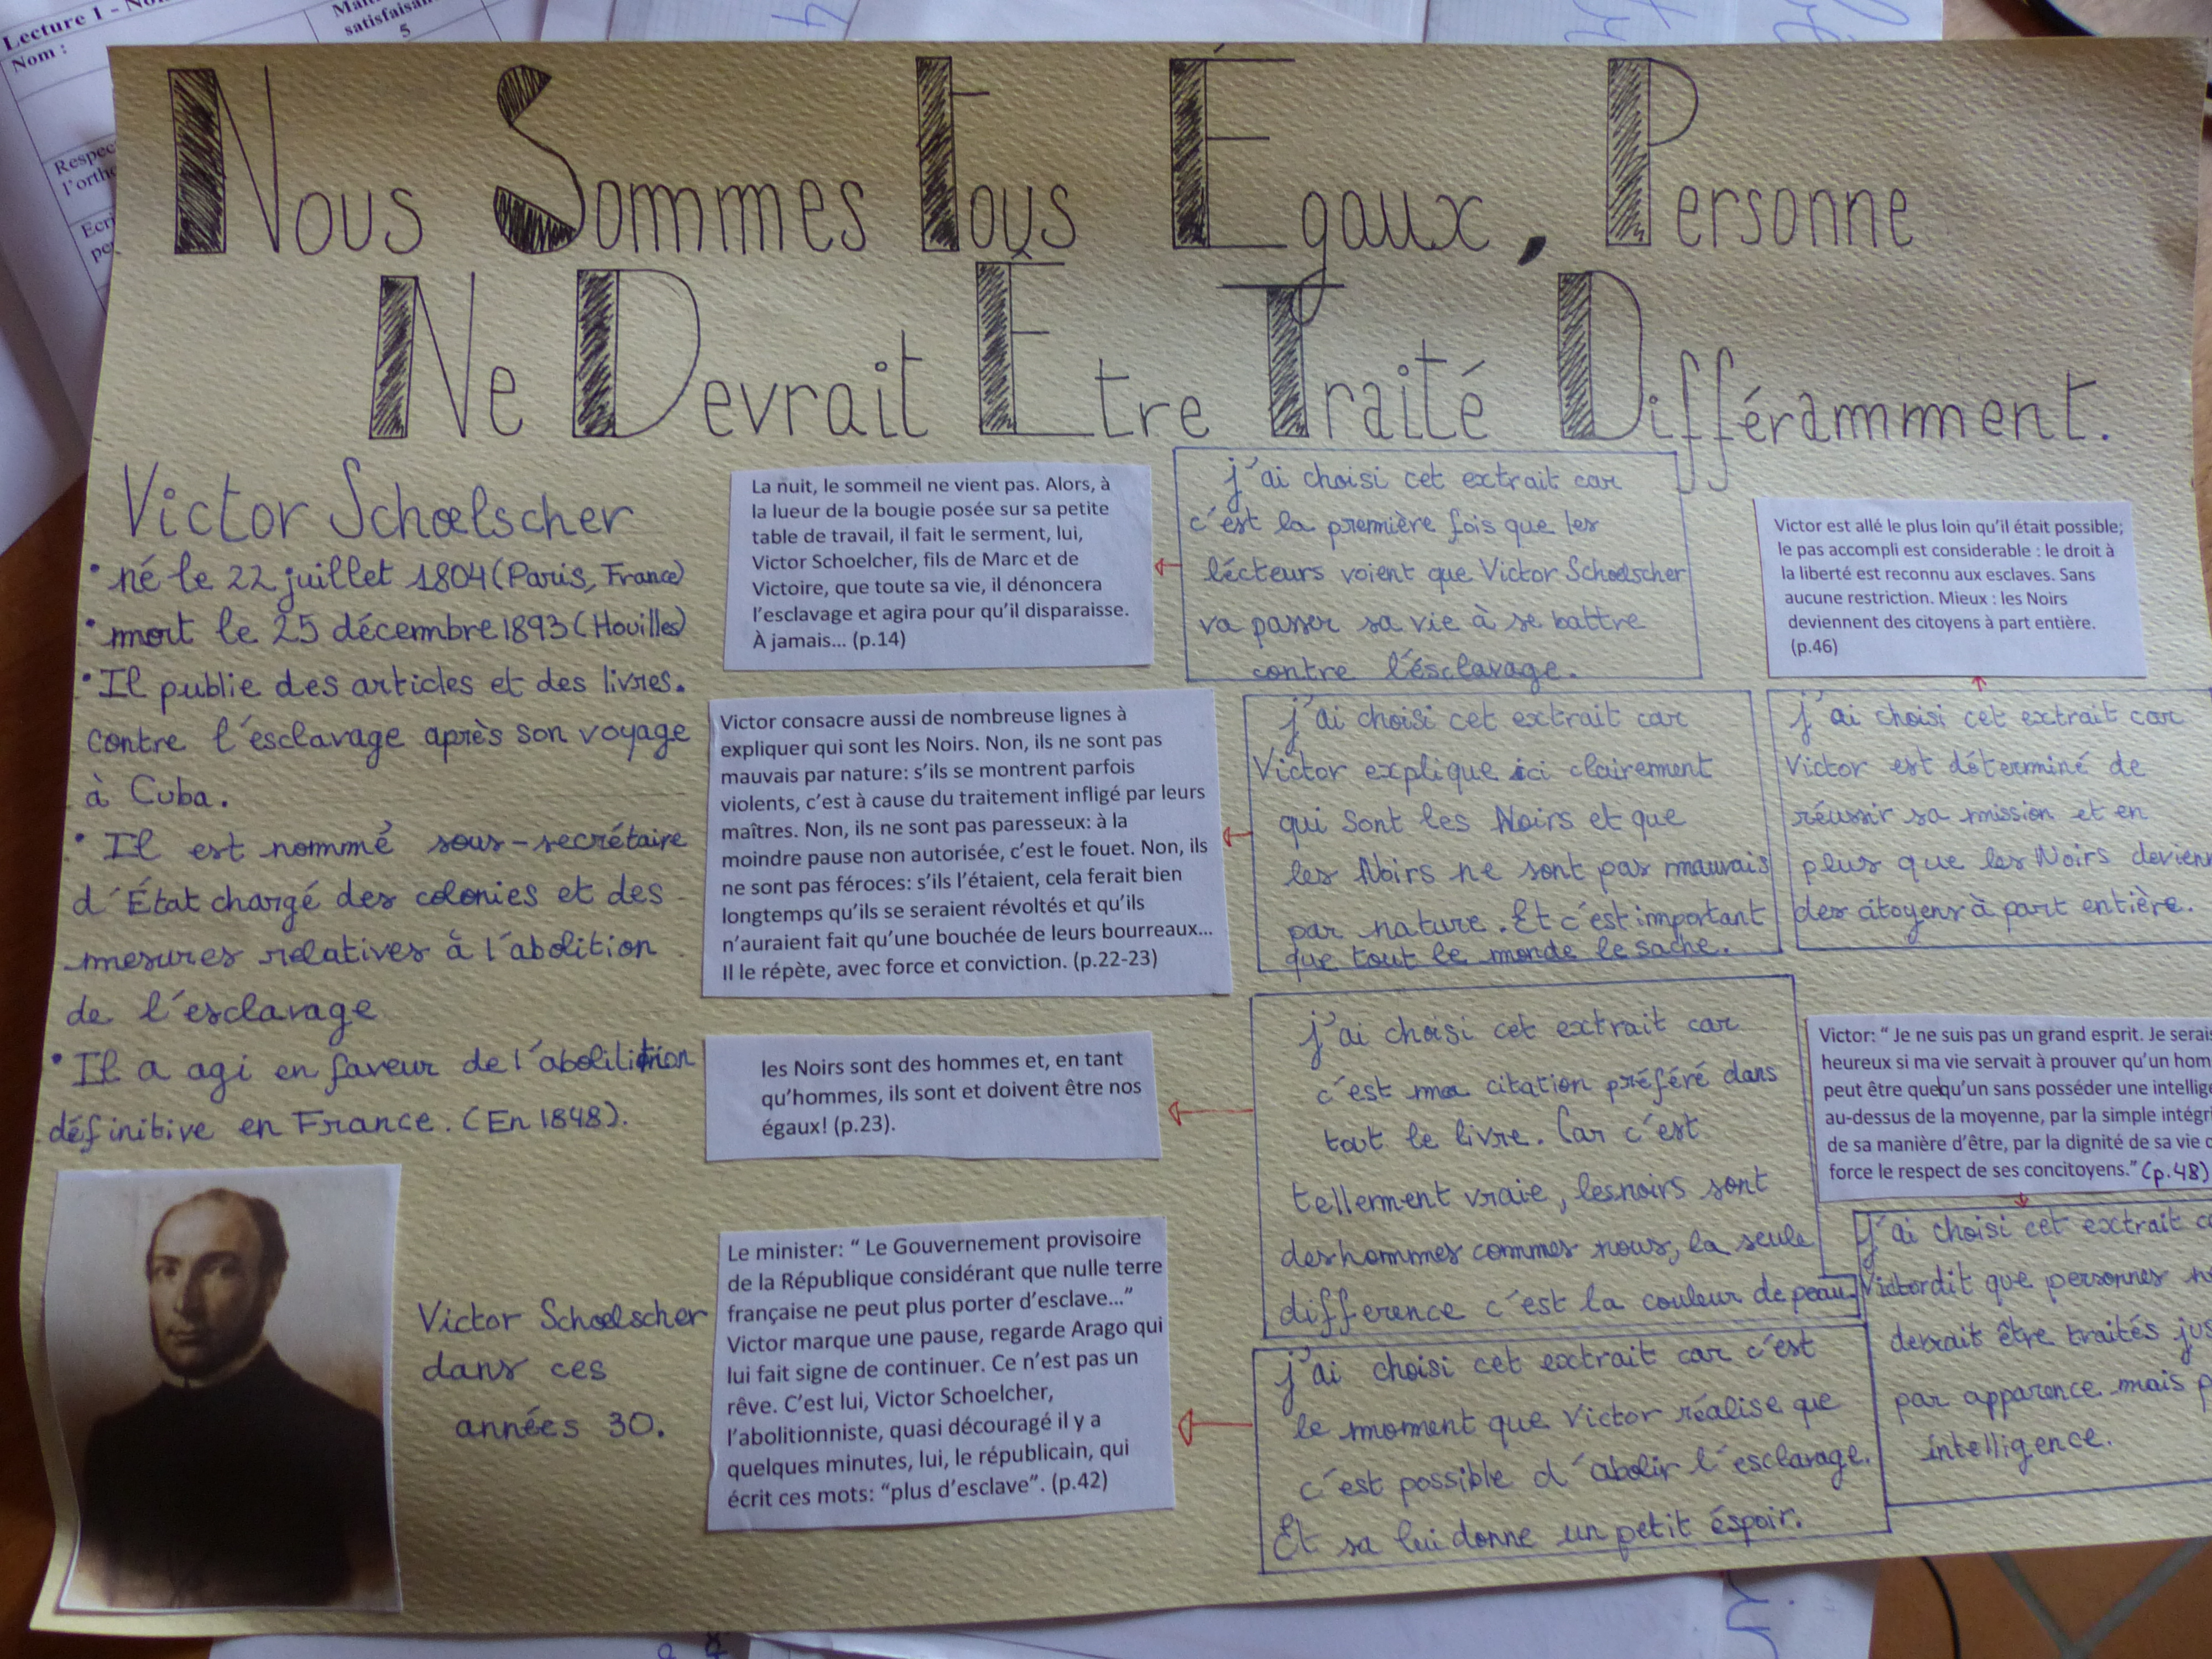 Lecture 1 - 
satisfaisan
5
Nom :
Respec
l'ortho
Ecri
pe
Nous Sommes Tous Égaux, Personne
Ne Devrait Être Traité Différamment.
Victor Schœlscher
• né le 22 juillet 1804 (Paris, France)
• mort le 25 décembre 1893 (Houilles)
• Il publie des articles et des livres.
contre l'esclavage après son voyage
à Cuba.
• Il est nommé sous-secrétaire
d'État chargé des colonies et des
mesures relatives à l'abolition
de l'esclavage
• Il a agi en faveur de l'
définitive en France. (En 1848).
Victor Schœlscher
dans ces
années 30.
La nuit, le sommeil ne vient pas. Alors, à
la lueur de la bougie posée sur sa petite
table de travail, il fait le serment, lui,
Victor Schoelcher, fils de Marc et de
Victoire, que toute sa vie, il dénoncera
l'esclavage et agira pour qu'il disparaisse.
À jamais... (p.14)
j'ai choisi cet extrait car
c'est la première fois que les
lécteurs voient que Victor Schœlscher
va passer sa vie à se battre
contre l'ésclavage.
Victor consacre aussi de nombreuse lignes à
expliquer qui sont les Noirs. Non, ils ne sont pas
mauvais par nature: s'ils se montrent parfois
violents, c'est à cause du traitement infligé par leurs
maîtres. Non, ils ne sont pas paresseux: à la
moindre pause non autorisée, c'est le fouet. Non, ils
ne sont pas féroces: s'ils l'étaient, cela ferait bien
longtemps qu'ils se seraient révoltés et qu'ils
n'auraient fait qu'une bouchée de leurs bourreaux...
Il le répète, avec force et conviction. (p.22-23)
j'ai choisi cet extrait car
Victor explique ici clairement
qui sont les Noirs et que
les Noirs ne sont pas mauvais
par nature. Et c'est important
que tout le monde le sache.
les Noirs sont des hommes et, en tant
qu'hommes, ils sont et doivent être nos
égaux! (p.23).
j'ai choisi cet extrait car
c'est ma citation préféré dans
tout le livre. Car c'est
tellement vraie, les noirs sont
des hommes commes nous, la seule
difference c'est la couleur de peau.
Le minister: " Le Gouvernement provisoire
de la République considérant que nulle terre
française ne peut plus porter d'esclave..."
Victor marque une pause, regarde Arago qui
lui fait signe de continuer. Ce n'est pas un
rêve. C'est lui, Victor Schoelcher,
l'abolitionniste, quasi découragé il y a
quelques minutes, lui, le républicain, qui
écrit ces mots: "plus d'esclave". (p.42)
j'ai choisi cet extrait car c'est
le moment que Victor réalise que
c'est possible d'abolir l'esclavage.
Et sa lui donne un petit éspoir.
Victor est allé le plus loin qu'il était possible;
le pas accompli est considerable : le droit à
la liberté est reconnu aux esclaves. Sans
aucune restriction. Mieux : les Noirs
deviennent des citoyens à part entière.
(p.46)
j'ai choisi cet extrait car
Victor est déterminé de
réussir sa mission et en
plus que les Noirs devienn
des citoyens à part entière.
Victor: " Je ne suis pas un grand esprit. Je serais
heureux si ma vie servait à prouver qu'un hom
peut être quelqu'un sans posséder une intellige
au-dessus de la moyenne, par la simple intégri
de sa manière d'être, par la dignité de sa vie q
force le respect de ses concitoyens." (p.48)
J'ai choisi cet extrait c
Victor dit que personnes n
devrait être traités jus
par apparence mais p
intelligence.